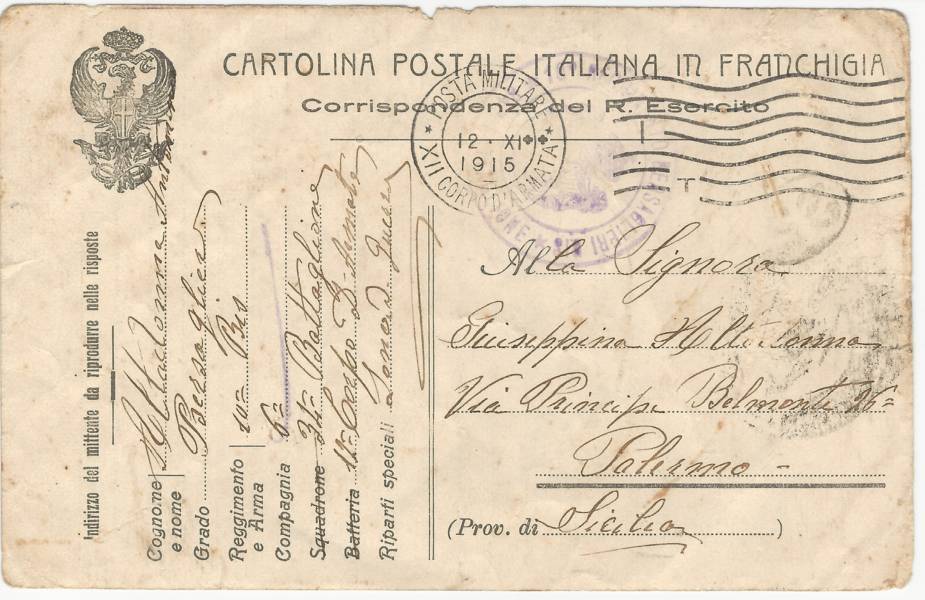 CARTOLINA POSTALE ITALIANA IN FRANCHIGIA
Corrispondenza del R. Esercito
POSTA MILITARE
12 · XI
1915
XII CORPO D'ARMATA
BERSAGLIERI
Alla Signora
Giuseppina Altadonna
Via Principe Belmonte
Palermo -
(Prov. di Sicilia)
Indirizzo del mittente da riprodurre nelle risposte
Cognome e nome Altadonna Antonino
Grado Bersagliere
Reggimento e Arma 10º Bis
Compagnia 6ª
Squadrone Battaglione
Batteria Corpo D'Armata
Riparti speciali Zona di Guerra